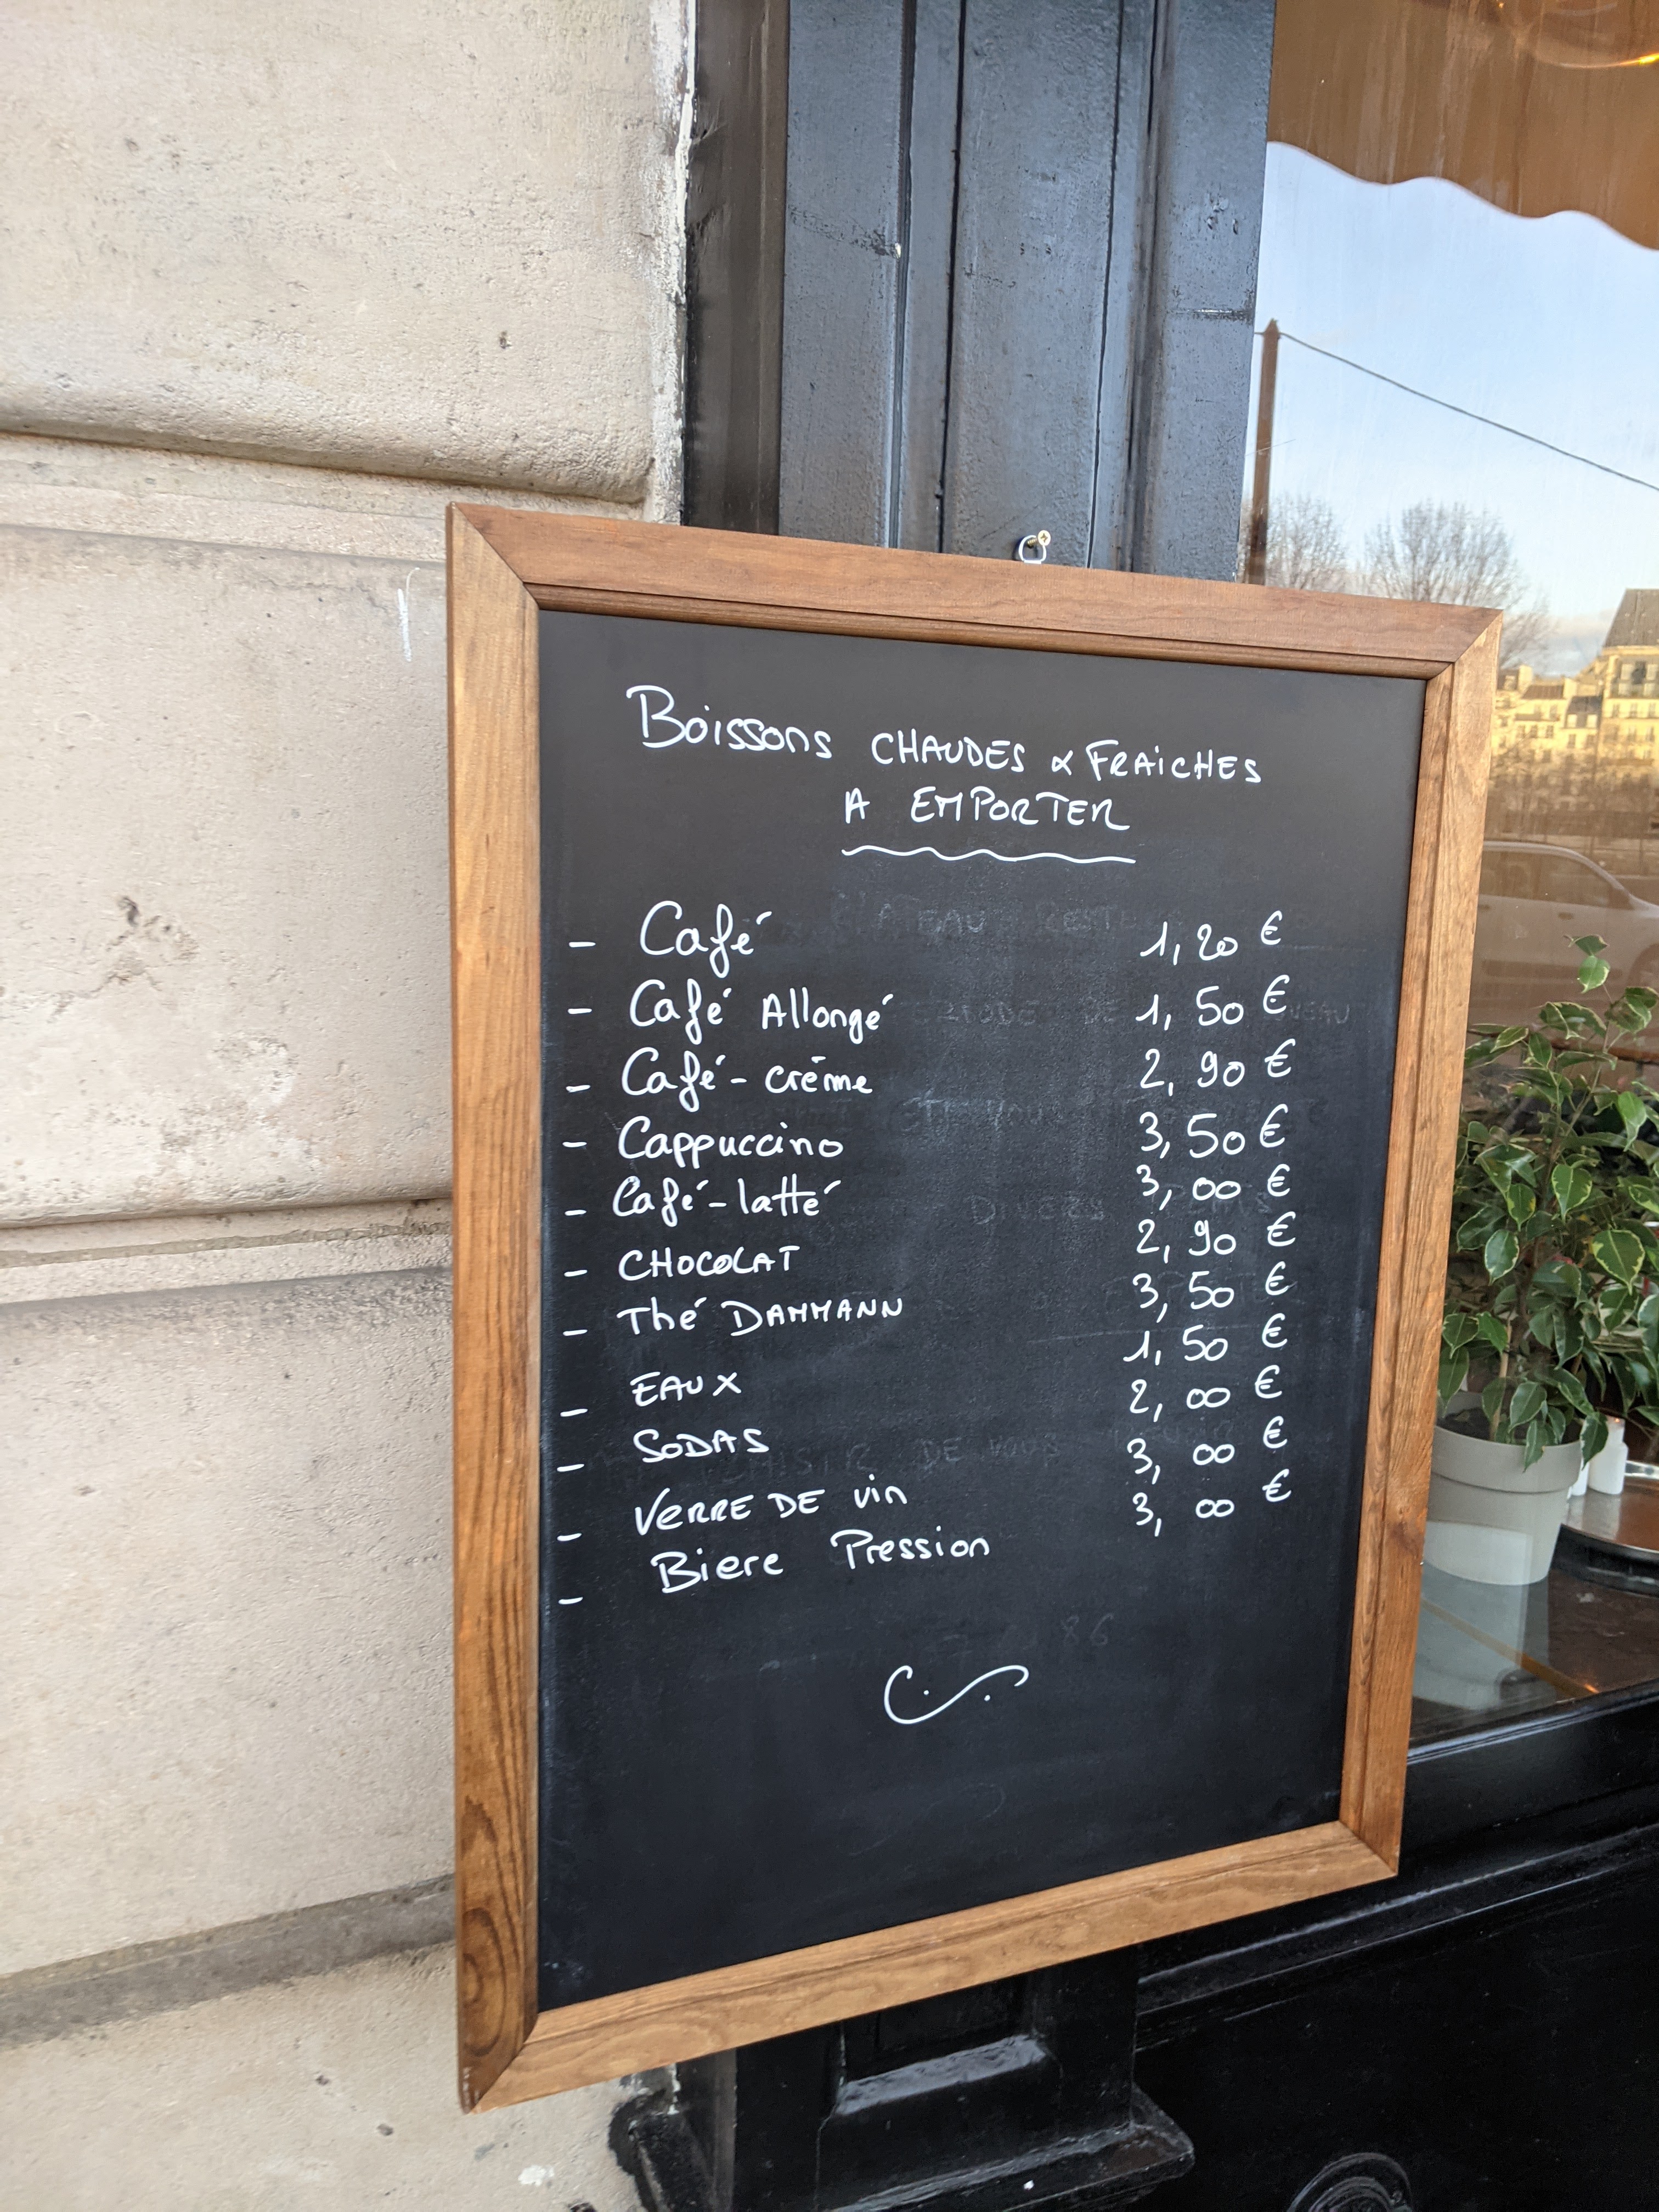 Boissons CHAUDES & FRAiCHES
A EMPORTER
- Café 1,20 €
- Café Allongé 1,50 €
- Café-crème 2,90 €
- Cappuccino 3,50 €
- Café-latté 3,00 €
- CHOCOLAT 2,90 €
- Thé DAMMANN 3,50 €
- EAUX 1,50 €
- SODAS 2,00 €
- VERRE DE vin 3,00 €
- Biere Pression 3,00 €